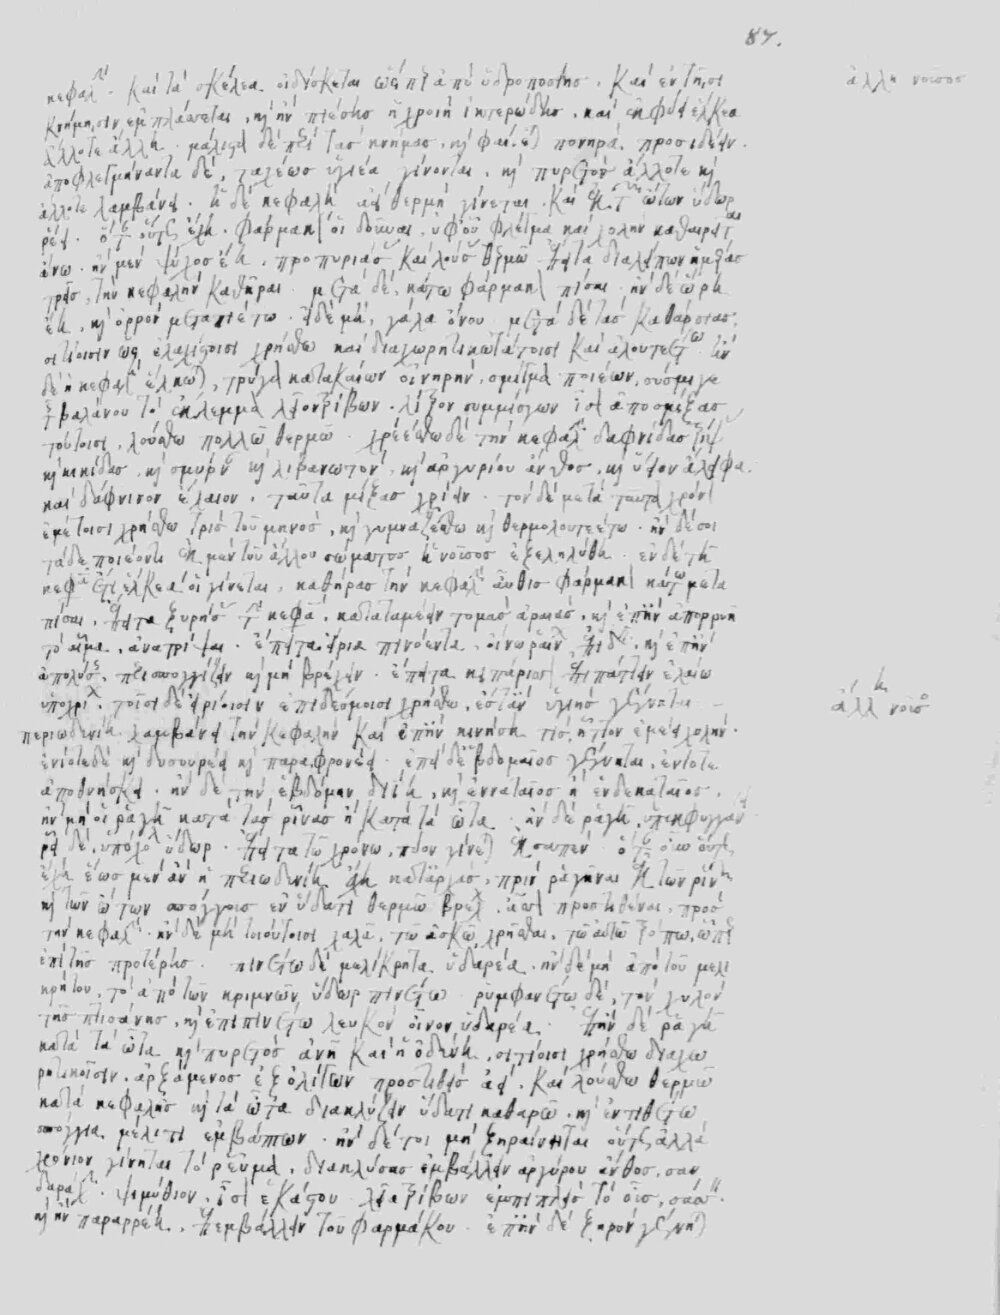 87.
ἄλλη νοῦσος
κεφαλῆ. καὶ τὰ σκέλεα οἰδίσκεται ὥσπερ ἀπὸ ὕδροποσίης. καὶ ἐν τῆισι
κνήμηισιν ἐμπλάσσεται, κἢν πιέσηις ἢ χροιὴ ἰκτερώδης, καὶ ἐκφύει ἕλκεα
ἄλλοτε ἄλλη. μάλιστα δὲ περὶ τὰς κνήμας, καὶ φαίνεται πονηρὰ προσιδεῖν.
ἀποφλεγμήναντα δὲ, ταχέως ὑγιέα γίνονται. καὶ πυρετὸς ἄλλοτε καὶ
ἄλλοτε λαμβάνει. ἡ δὲ κεφαλὴ αἰεὶ θερμὴ γίνεται. καὶ ἐκ τῶν ὤτων ὕδωρ
ῥέει. ὅταν οὕτως ἔχη. φάρμακον οἱ δοῦναι, ὑφ' οὗ φλέγμα καὶ χολὴν καθαιρεῖται
ἄνω. ἢν μὲν ψῦχος ἔη, προπυριάσας καὶ λούσας θερμῶ. ἔπειτα διαλείπων ἡμέρας
τρεῖς, τὴν κεφαλὴν καθῆραι. μετὰ δὲ, κάτω φάρμακον πῖσαι. ἢν δὲ ὥρη
ἔη, καὶ ὀρρὸν μεταπιέτω. εἰ δὲ μὴ, γάλα ὄνου. μετὰ δὲ τὰς καθάρσιας,
σιτίοισιν ὡς ἐλαχίστοισι χρήσθω καὶ διαχωρητικωτάτοισι καὶ ἀλουτείτω. ἢν
δὲ ἡ κεφαλὴ ἑλκῶται, τρύγα κατακαίων οἰνηρὴν, σμῆγμα ποιέων, σύσμιγε
τῆς βαλάνου τὸ ἔκλεμμα λεῖον τρίβων. λίτρον συμμίσγων ἴσον ἀποσμήξας
τούτοισι, λούσθω πολλῶ θερμῶ. χρεέσθω δὲ τὴν κεφαλὴν δαφνίδας τρίψας
καὶ κικίδας, καὶ σμύρναν καὶ λιβανωτὸν, καὶ ἀργυρίου ἄνθος, καὶ ὕειον ἄλειφα.
καὶ δάφνινον ἔλαιον. ταῦτα μίξας χρίειν. τὸν δὲ μετὰ ταῦτα χρόνον
ἐμέτοισι χρήσθω τρὶς τοῦ μηνὸς, καὶ γυμναζέσθω καὶ θερμολουτεέτω. ἢν δέ σοι
τάδε ποιέοντι ἐκ μὲν τοῦ ἄλλου σώματος ἡ νοῦσος ἐξεληλύθη. ἐν δὲ τῆ
κεφαλῆ ἔτι ἕλκεα οἱ γίνεται, καθήρας τὴν κεφαλὴν αὖθις φάρμακον κάτω μετα
πῖσαι. ἔπειτα ξυρήσας τὴν κεφαλὴν, καταταμέειν τομὰς ἀραιὰς, καὶ ἐπὴν ἀπορρυῆ
τὸ αἷμα, ἀνατρῖψαι. ἔπειτα εἴρια πινόεντα, οἴνω ῥαίνων ἐπιδεῖν, καὶ ἐπὴν
ἀπολύσης, περισπογγίζειν καὶ μὴ βρέχειν. ἔπειτα κυπάρισσον ἐπιπάττειν ἐλαίω
ὑποχρίων. τοῖσι δὲ εἰρίοισιν ἐπιδέσμοισι χρήσθω, ἔστ' ἂν ὑγιὴς γένηται
ἄλλη νοῦσος
περιωδυνίη λαμβάνει τὴν κεφαλὴν καὶ ἐπὴν κινήση τις, ἧττον ἐμέει χολήν.
ἐνίοτε δὲ καὶ δυσουρέει καὶ παραφρονέει. ἐπεὶ δὲ ἑβδομαῖος γένηται, ἐνίοτε
ἀποθνήσκει. ἢν δὲ τὴν ἑβδόμην φύγη, καὶ ἐνναταῖος ἢ ἑνδεκαταῖος,
ἢν μή οἱ ῥαγῆ κατὰ τὰς ῥῖνας ἢ κατὰ τὰ ὦτα. ἢν δὲ ῥαγῆ, ὑπεκφυγγάνει
ῥεῖ δὲ, ὑπόχολον ὕδωρ. ἔπειτα τῶ χρόνω, πύον γίνεται ἐπὴν σαπῆ. ὅταν οὕτως
ἔχη ἕως μὲν ἂν ἡ περιωδυνίη ἔχη κατ' ἀρχὰς, πρὶν ῥαγῆναι ἐκ τῶν ῥινῶν
καὶ τῶν ὤτων σπόγγους ἐν ὕδατι θερμῶ βρέχων. αἰεὶ προστιθέναι πρὸς
τὴν κεφαλὴν. ἢν δὲ μὴ τούτοισι χαλᾶ, τῶ ἀσκῶ χρῆσθαι, τῶ αὐτῶ τρόπω, ὥσπερ
ἐπὶ τῆς προτέρης. πινέτω δὲ μελίκρητα ὑδαρέα. ἢν δὲ μὴ ἀπὸ τοῦ μελι
κρήτου, τὸ ἀπὸ τῶν κρίμνων ὕδωρ πινέτω. ῥυμφανέτω δὲ, τὸν χυλὸν
τῆς πτισάνης, καὶ ἐπιπινέτω λευκὸν οἶνον ὑδαρέα. ἐπὴν δὲ ῥαγῆ
κατὰ τὰ ὦτα καὶ πυρετὸς ἀνῆ καὶ ἡ ὀδύνη, σιτίοισι χρήσθω διαχω
ρητικοῖσιν, ἀρξάμενος ἐξ ὀλίγων προστιθεὶς αἰεὶ. καὶ λούσθω θερμῶ
κατὰ κεφαλῆς καὶ τὰ ὦτα διακλύζειν ὕδατι καθαρῶ. καὶ ἐντιθέτω
σπογγία μέλιτι ἐμβάπτων. ἢν δέ τοι μὴ ξηραίνηται οὕτως ἀλλὰ
χρόνιον γίνηται τὸ ῥεῦμα, διακλύσας ἐμβάλλειν ἀργύρου ἄνθος, σαν
δαράχην. ψιμύθιον, ἴσον ἑκάστου λεῖα τρίβων ἐμπιπλεὶς τὸ οὖς, σάσσειν.
καὶ ἢν παραρρέη, ἐπεμβάλλειν τοῦ φαρμάκου. ἐπὴν δὲ ξηρὸν γένηται